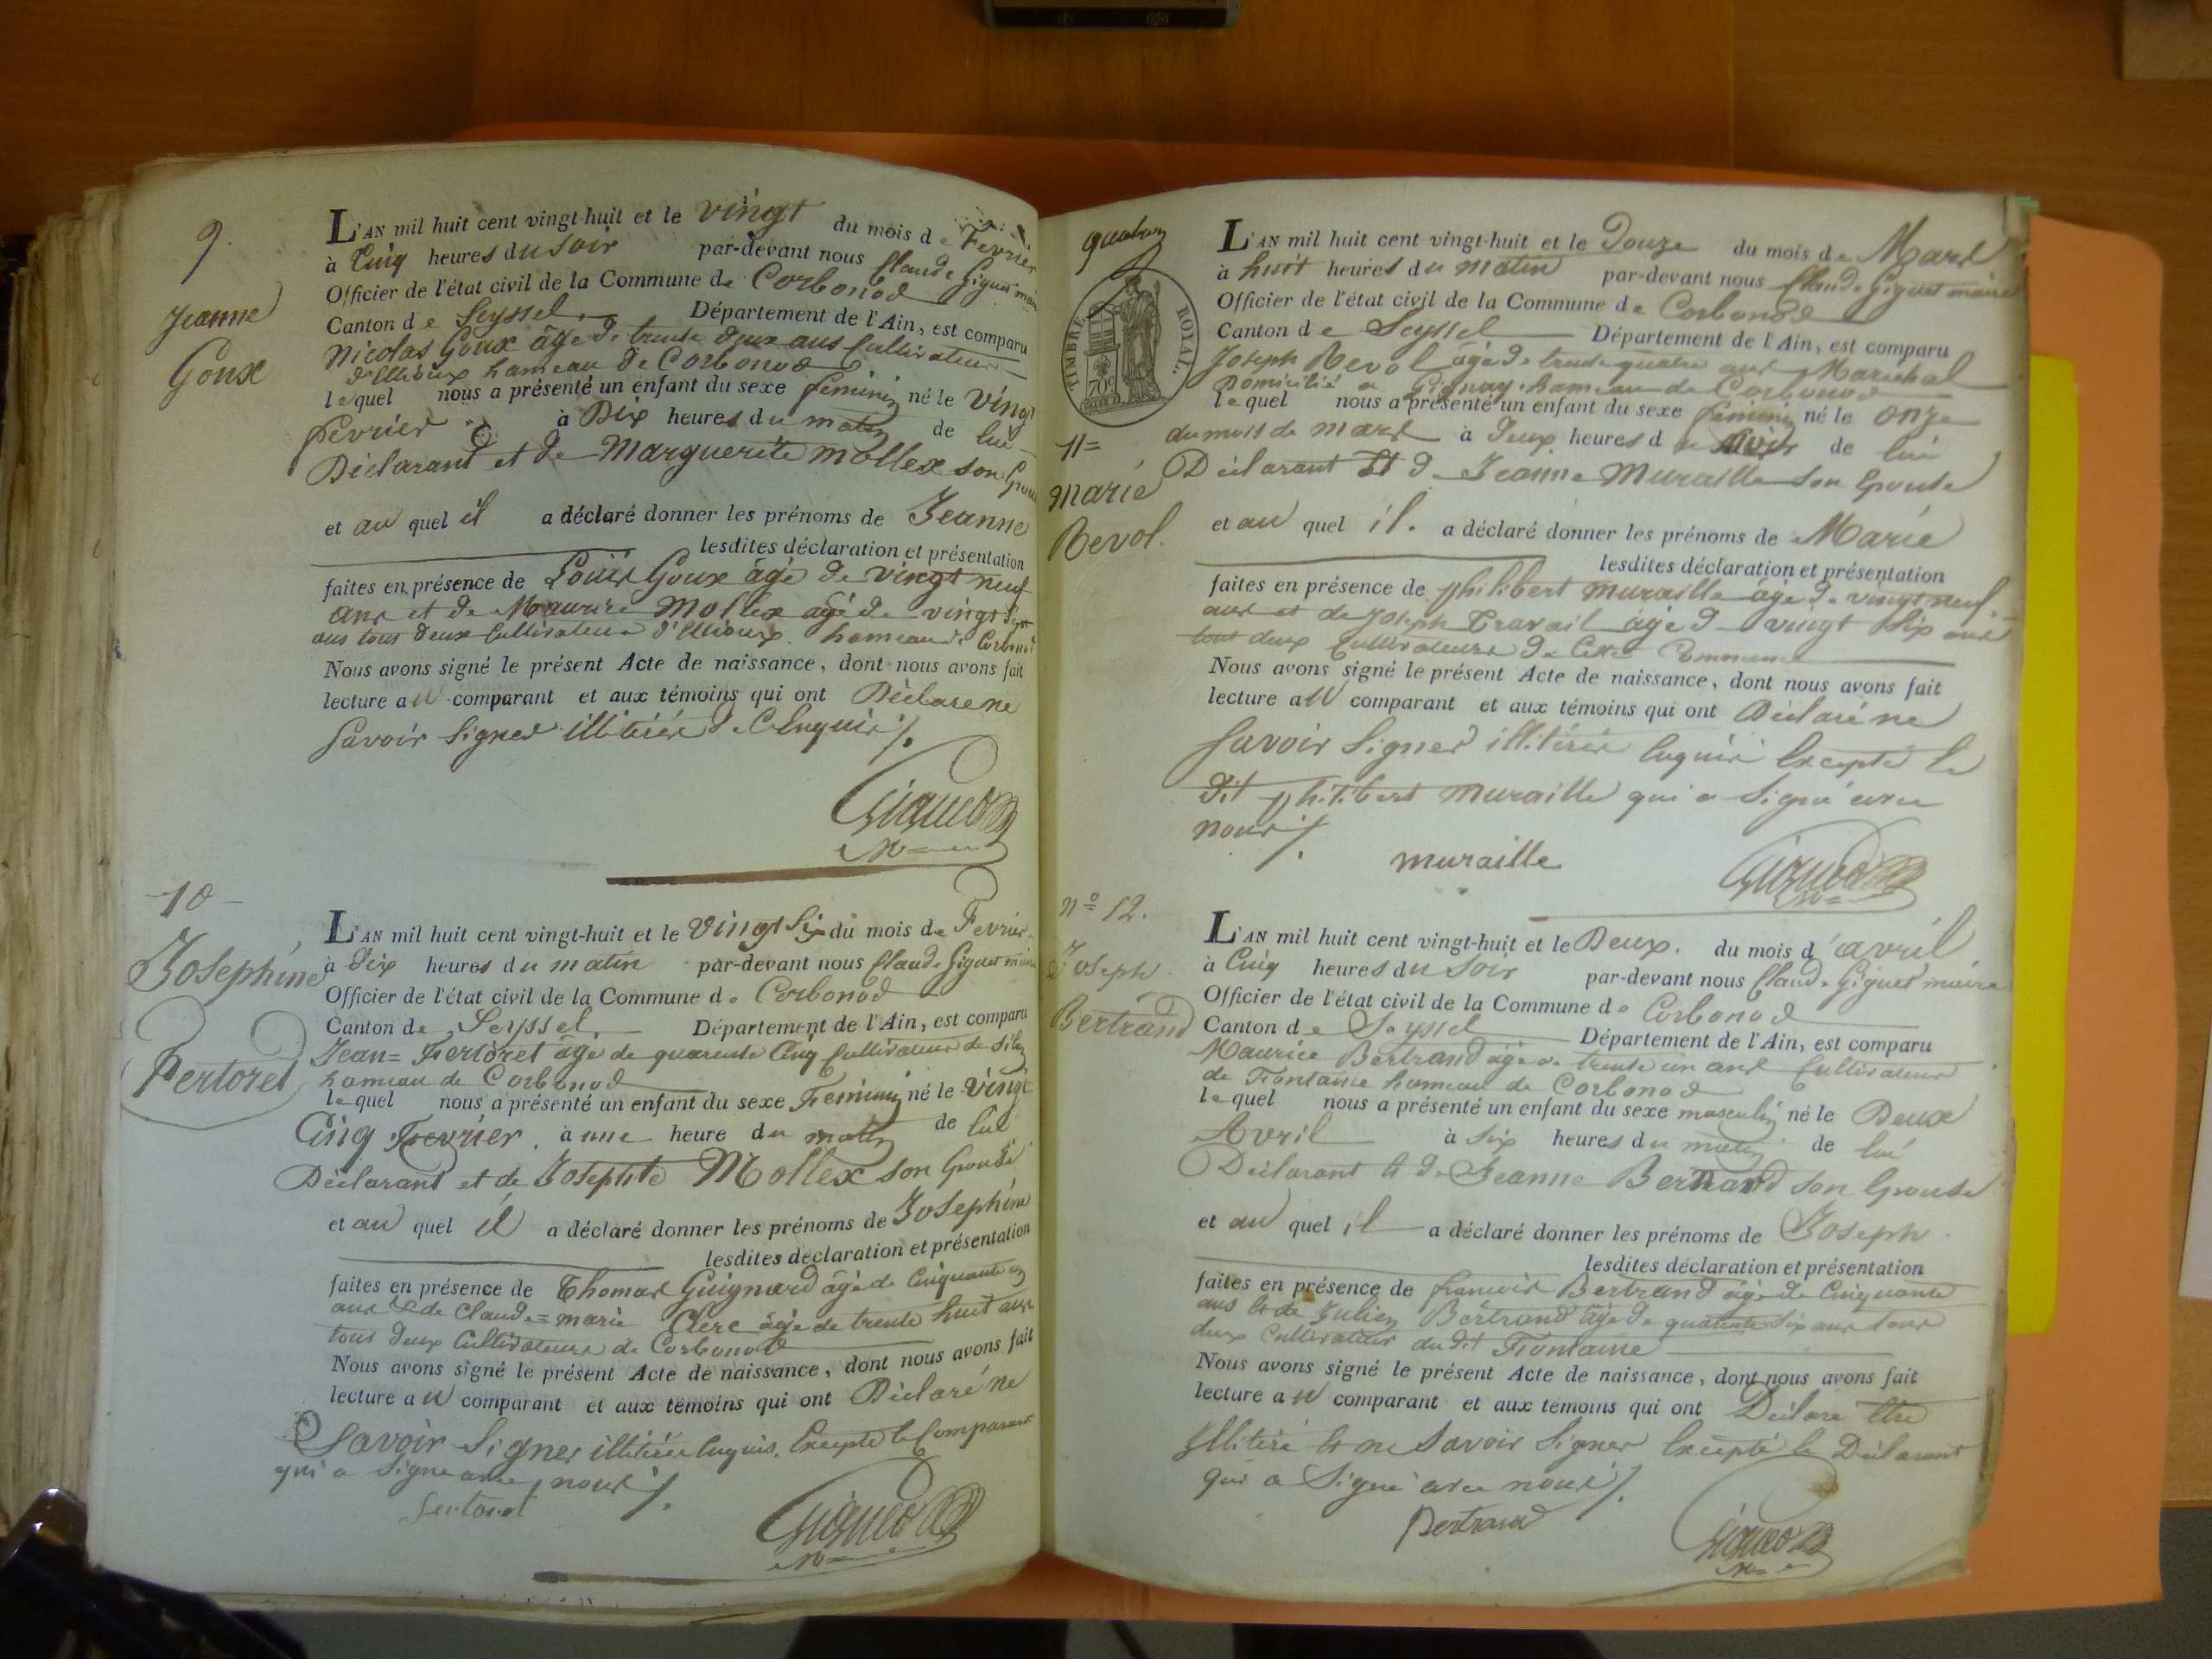 9.
Jeanne
Goux
L'AN mil huit cent vingt-huit et le vingt du mois de Fevrier
à Cinq heures du soir par-devant nous Claude Giguet maire
Officier de l'état civil de la Commune de Corbonod
Canton de Seyssel. Département de l'Ain, est comparu
Nicolas Goux âgé de trente deux ans Cultivateur
hameau de Corbonod
lequel nous a présenté un enfant du sexe feminin né le vingt
fevrier à Dix heures du matin de lui
Déclarant et de Marguerite Mollex son Epouse
et au quel il a déclaré donner les prénoms de Jeanne
lesdites déclaration et présentation
faites en présence de Louis Goux âgé de vingt neuf
ans et de Maurice Mollex agé de vingt Sept
ans tous deux Cultivateurs hameau de Corbonod
Nous avons signé le présent Acte de naissance, dont nous avons fait
lecture au comparant et aux témoins qui ont Déclaré ne
Savoir Signer illitéré de Ce Enquis /.
Giguet
10
Josephine
Fertoret
L'AN mil huit cent vingt-huit et le vingt Six du mois de Fevrier
à Dix heures du matin par-devant nous Claude Giguet maire
Officier de l'état civil de la Commune de Corbonod
Canton de Seyssel. Département de l'Ain, est comparu
Jean= Fertoret âgé de quarente Cinq Cultivateur de Silan
hameau de Corbonod
lequel nous a présenté un enfant du sexe Feminin né le vingt
Cinq Fevrier. à une heure du matin de lui
Déclarant et de Josephte Mollex son Epouse
et au quel il a déclaré donner les prénoms de Josephine
lesdites déclaration et présentation
faites en présence de Thomas Guignard âgé de Cinquante un
ans & de Claude=marie Clerc âgé de trente huit ans
tous deux Cultivateurs de Corbonod
Nous avons signé le présent Acte de naissance, dont nous avons fait
lecture au comparant et aux témoins qui ont Déclaré ne
Savoir Signer illitéré Enquis. Excepté le Comparant
qui a Signé avec nous /.
fertoret
Giguet
TIMBRE ROYAL.
70c
11=
Marie
Revol.
L'AN mil huit cent vingt-huit et le Douze du mois de Mars
à huit heures du matin par-devant nous Claude Giguet maire
Officier de l'état civil de la Commune de Corbonod
Canton de Seyssel Département de l'Ain, est comparu
Joseph Revol âgé de trente quatre ans Maréchal
Domicilié a Gignay hameau de Corbonod
lequel nous a présenté un enfant du sexe feminin né le onze
du mois de mars à Deux heures du soir de lui
Déclarant Et de Jeanne Muraille son Epouse
et au quel il. a déclaré donner les prénoms de Marie
lesdites déclaration et présentation
faites en présence de philibert muraille âgé de vingt neuf
ans et de Joseph Travail âgé de vingt Six ans
tout deux Cultivateurs de Cette Commune
Nous avons signé le présent Acte de naissance, dont nous avons fait
lecture au comparant et aux témoins qui ont Déclaré ne
Savoir Signer illitéré Enquis Excepté le
dit philibert muraille qui a Signé avec
nous /.
muraille
Giguet
n° 12.
Joseph
Bertrand
L'AN mil huit cent vingt-huit et le Deux. du mois d'avril
à Cinq heures du Soir par-devant nous Claude Giguet maire
Officier de l'état civil de la Commune de Corbonod
Canton de Seyssel Département de l'Ain, est comparu
Maurice Bertrand âgé de trente un ans Cultivateur
de Fontaine hameau de Corbonod
lequel nous a présenté un enfant du sexe masculin né le Deux
Avril à six heures du matin de lui
Déclarant Et de Jeanne Bertrand son Epouse
et au quel il a déclaré donner les prénoms de Joseph.
lesdites déclaration et présentation
faites en présence de francois Bertrand âgé de Cinquante
ans Et de Julien Bertrand âgé de quarante Six ans tous
deux Cultivateur du dit Fontaine
Nous avons signé le présent Acte de naissance, dont nous avons fait
lecture au comparant et aux témoins qui ont Déclaré Etre
Illitéré Et ne Savoir Signer Excepté le Déclarant
qui a Signé avec nous /.
Bertrand
Giguet